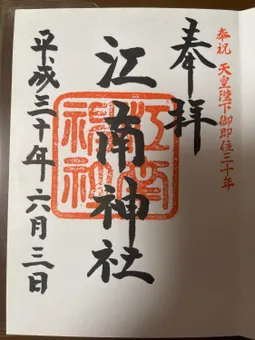 奉祝 天皇陛下御即位三十年
奉拝
江南神社
江南神社
平成三十年六月三日